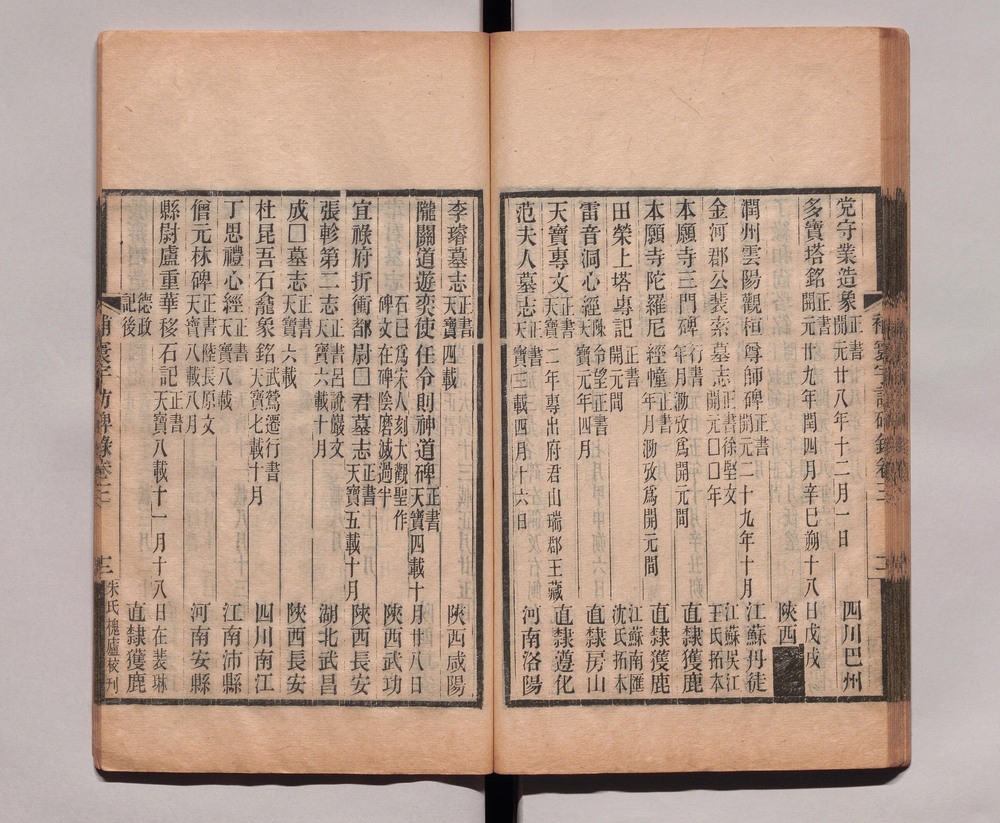 党守業造象正書開元廿八年十二月一日 四川巴州
多寶塔銘正書開元廿九年閏四月辛巳朔十八日戊戌 陝西
潤州雲陽觀桓尊師碑正書開元二十九年十月 江蘇丹徒
金河郡公裴索墓志正書徐堅文開元□□年 江蘇吳江王氏拓本
本願寺三門碑行書年月泐攷爲開元間 直隸獲鹿
本願寺陀羅尼經幢正書年月泐攷爲開元間 直隸獲鹿
田榮上塔專記正書開元間 江蘇南匯沈氏拓本
雷音洞心經陳令望正書天寶元年四月 直隸房山
天寶專文正書天寶二年專出府君山瑞郡王藏 直隸遵化
范夫人墓志正書天寶三載四月十六日 河南洛陽
李璿墓志正書天寶四載 陝西咸陽
隴關道遊奕使任令則神道碑正書天寶四載十月廿八日
石已爲宋人刻大觀聖作碑文在碑陰磨滅過半 陝西武功
宜祿府折衝都尉□□君墓志正書天寶五載十月 陝西長安
張軫第二志正書呂說巖文天寶六載十月 湖北武昌
成□墓志正書天寶六載 陝西長安
杜昆吾石龕象銘武鶯遷行書天寶七載十月 四川南江
丁思禮心經正書天寶八載 江南沛縣
僧元林碑正書陸長原文天寶八載八月 河南安縣
縣尉盧重華移石記正書天寶八載十一月十八日在裴琳德政記後 直隸獲鹿
補寰宇訪碑錄卷三 三 朱氏槐廬校刊